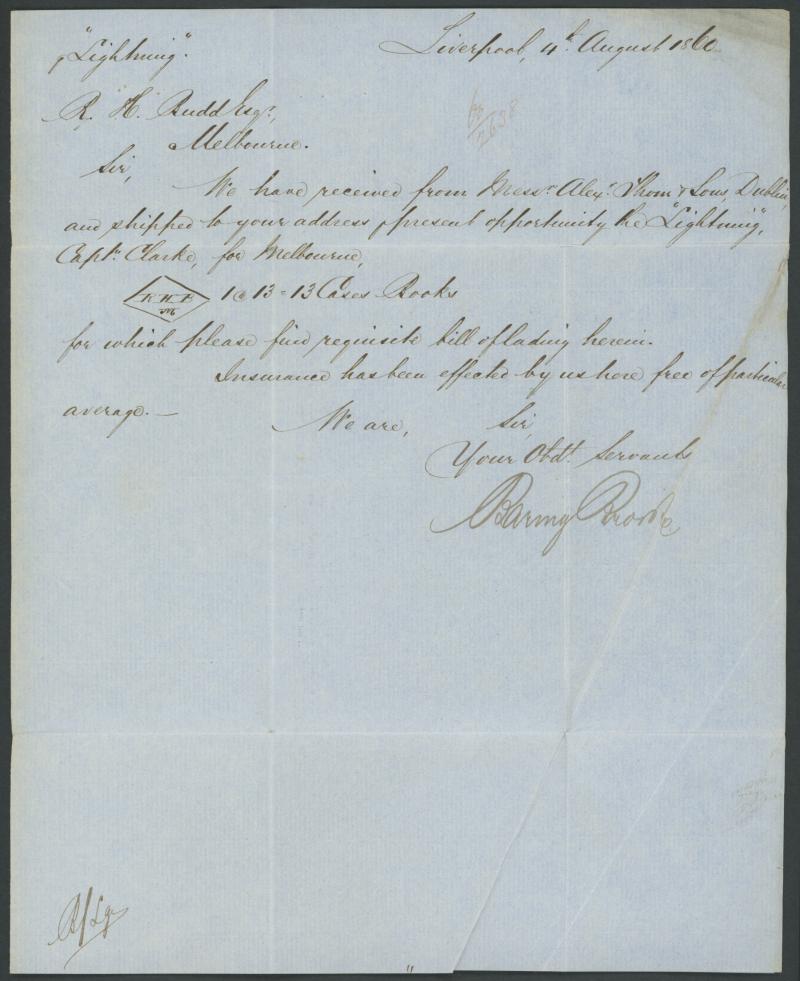 p "Lightning".
Liverpool, 4th August 1860
60/2638
R. H. Budd Esqr.,
Melbourne.
Sir,
We have received from Messrs Alexr. Thom & Sons, Dublin,
and shipped to your address p present opportunity the "Lightning",
Captn. Clarke, for Melbourne,
R H B
M
1 @ 13 = 13 Cases Books
for which please find requisite bill of lading herein.
Insurance has been effected by us here free of particular
average. —
We are, Sir,
Your Obdt. Servants
Baring Brors &